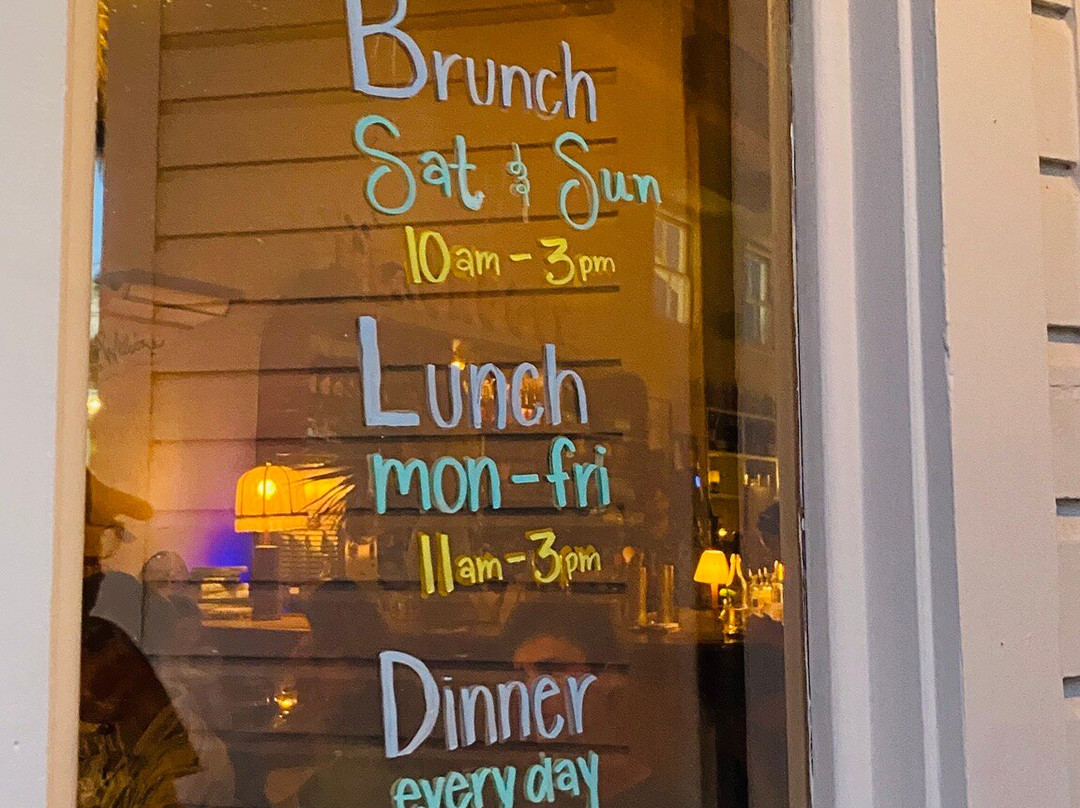 Brunch
Sat & Sun
10am - 3pm
Lunch
mon-fri
11am-3pm
Dinner
every day